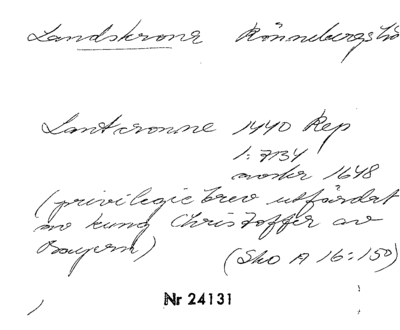 Landskrona Rönnebergs hä
Lantcronne 1440 Rep
1:7134
under 1648
(privilegiebrev utfärdat
av kung Christoffer av
Bayern) (Sko A 16:150)
Nr 24131